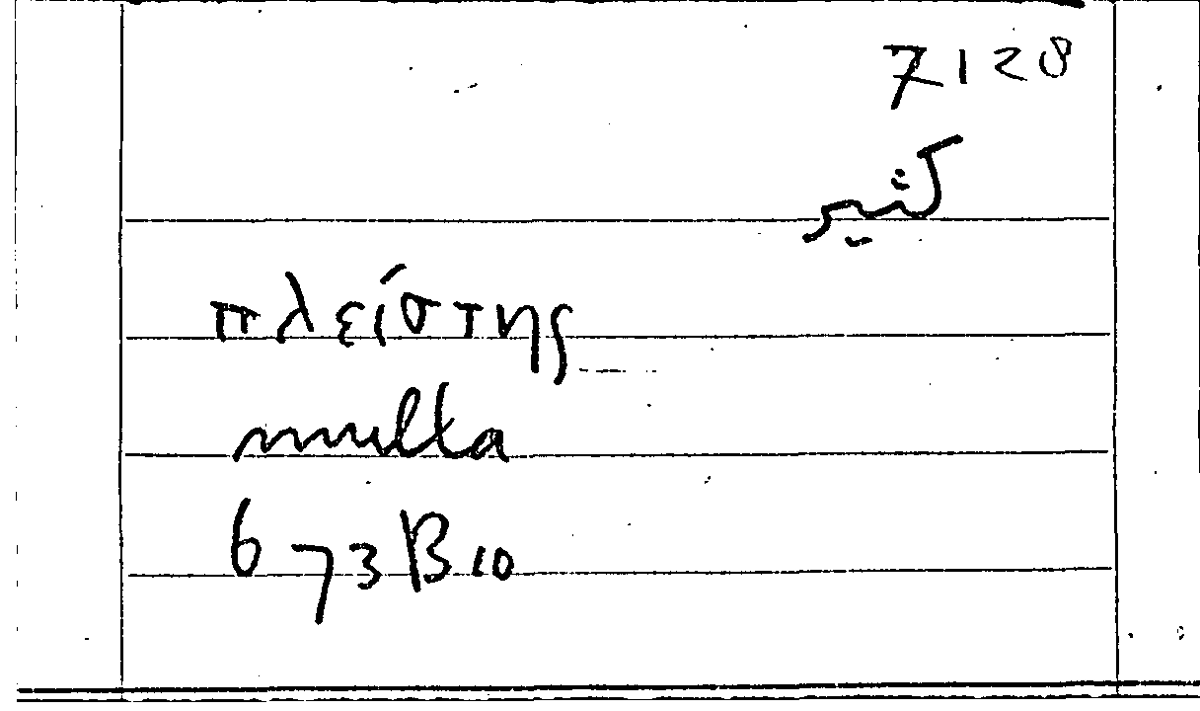 7128
كثير
πλείστης
multa
673B10